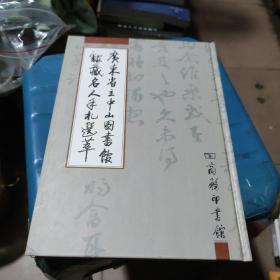 廣東省立中山圖書館
館藏名人手札選萃
商務印書館